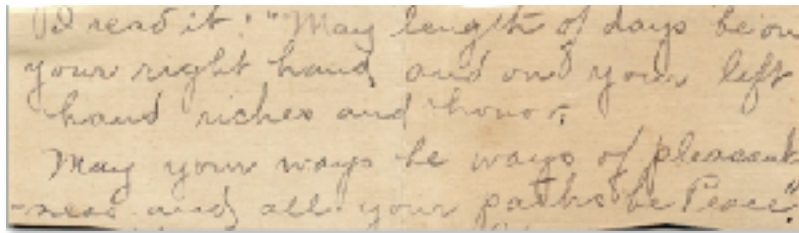 I'd read it: "May length of days be on
your right hand, and on your left
hand riches and honor.
May your ways be ways of pleasant
-ness and all your paths be Peace."